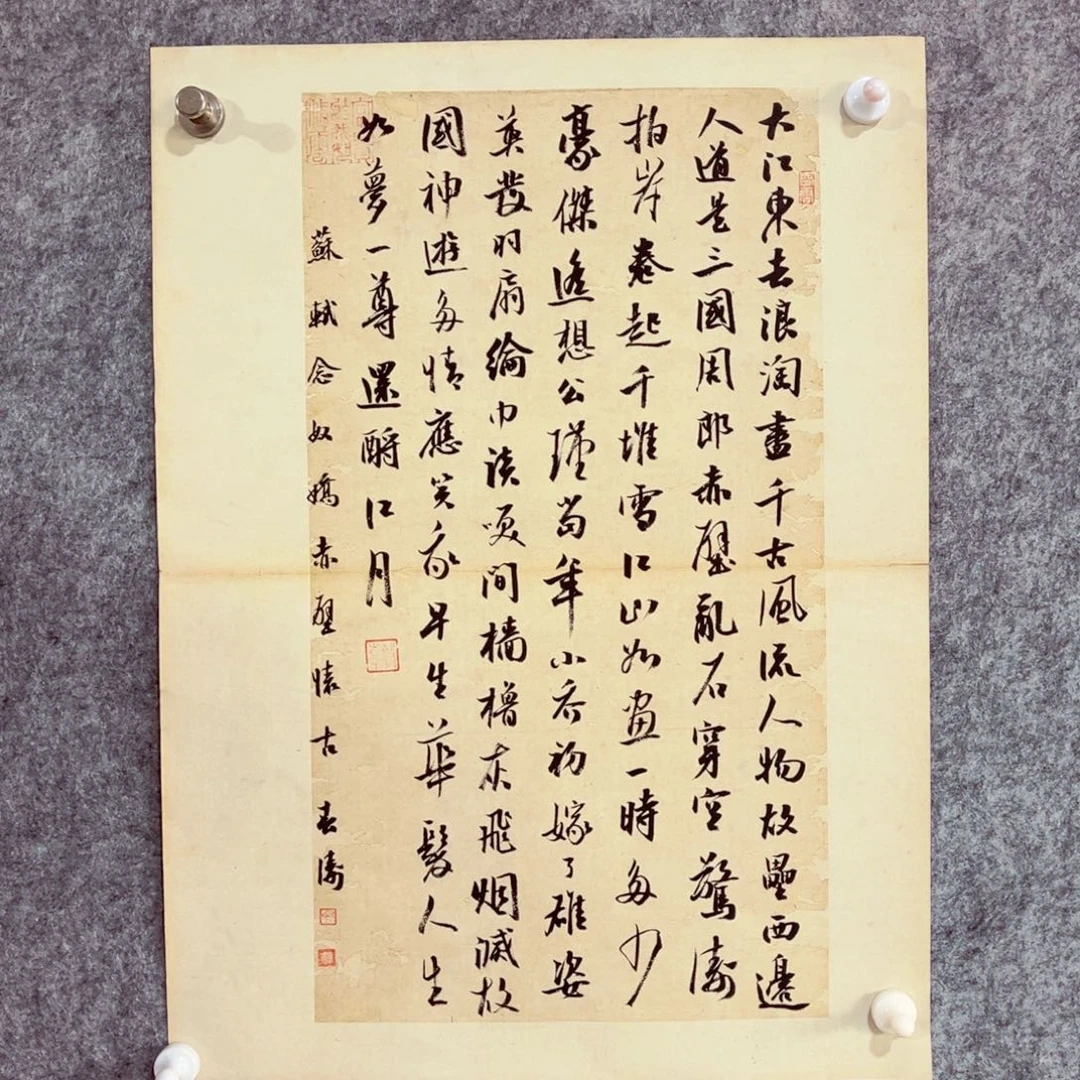 大江東去浪淘盡千古風流人物故壘西邊
人道是三國周郎赤壁亂石穿空驚濤
拍岸卷起千堆雪江山如畫一時多少
豪傑遙想公瑾當年小喬初嫁了雄姿
英發羽扇綸巾談笑間檣櫓灰飛烟滅故
國神遊多情應笑我早生華髮人生
如夢一尊還酹江月
蘇軾念奴嬌赤壁懷古 春濤